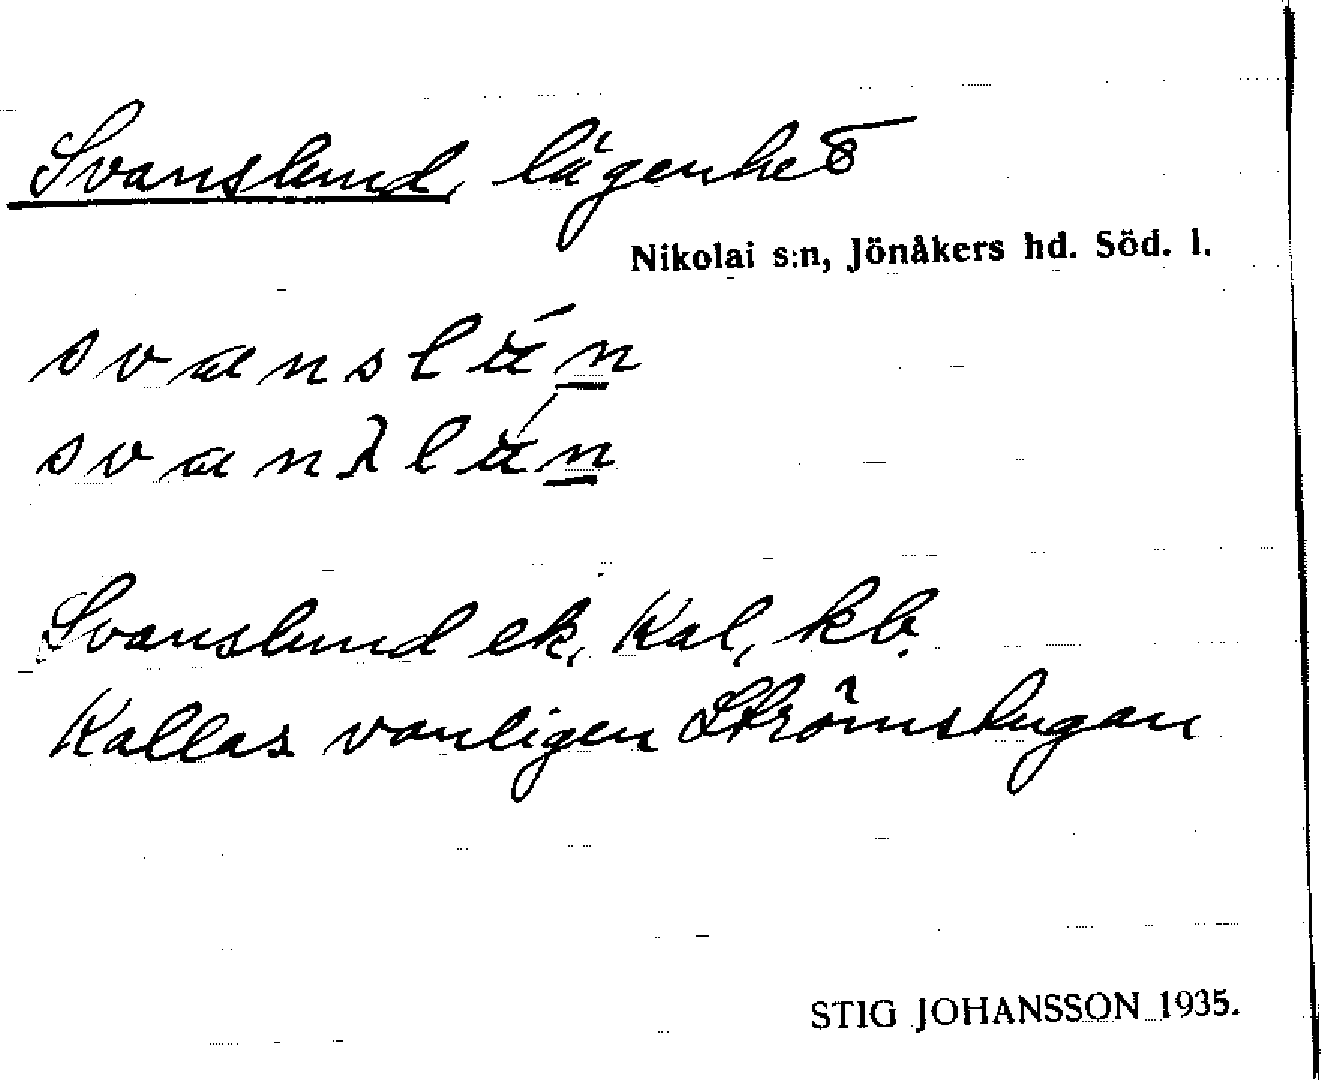 Svanslund, lägenhet
Nikolai s:n, Jönåkers hd. Söd. l.
Svanslund ek, Kal, kb.
Kallas vanligen Strömstugan
STIG JOHANSSON 1935.